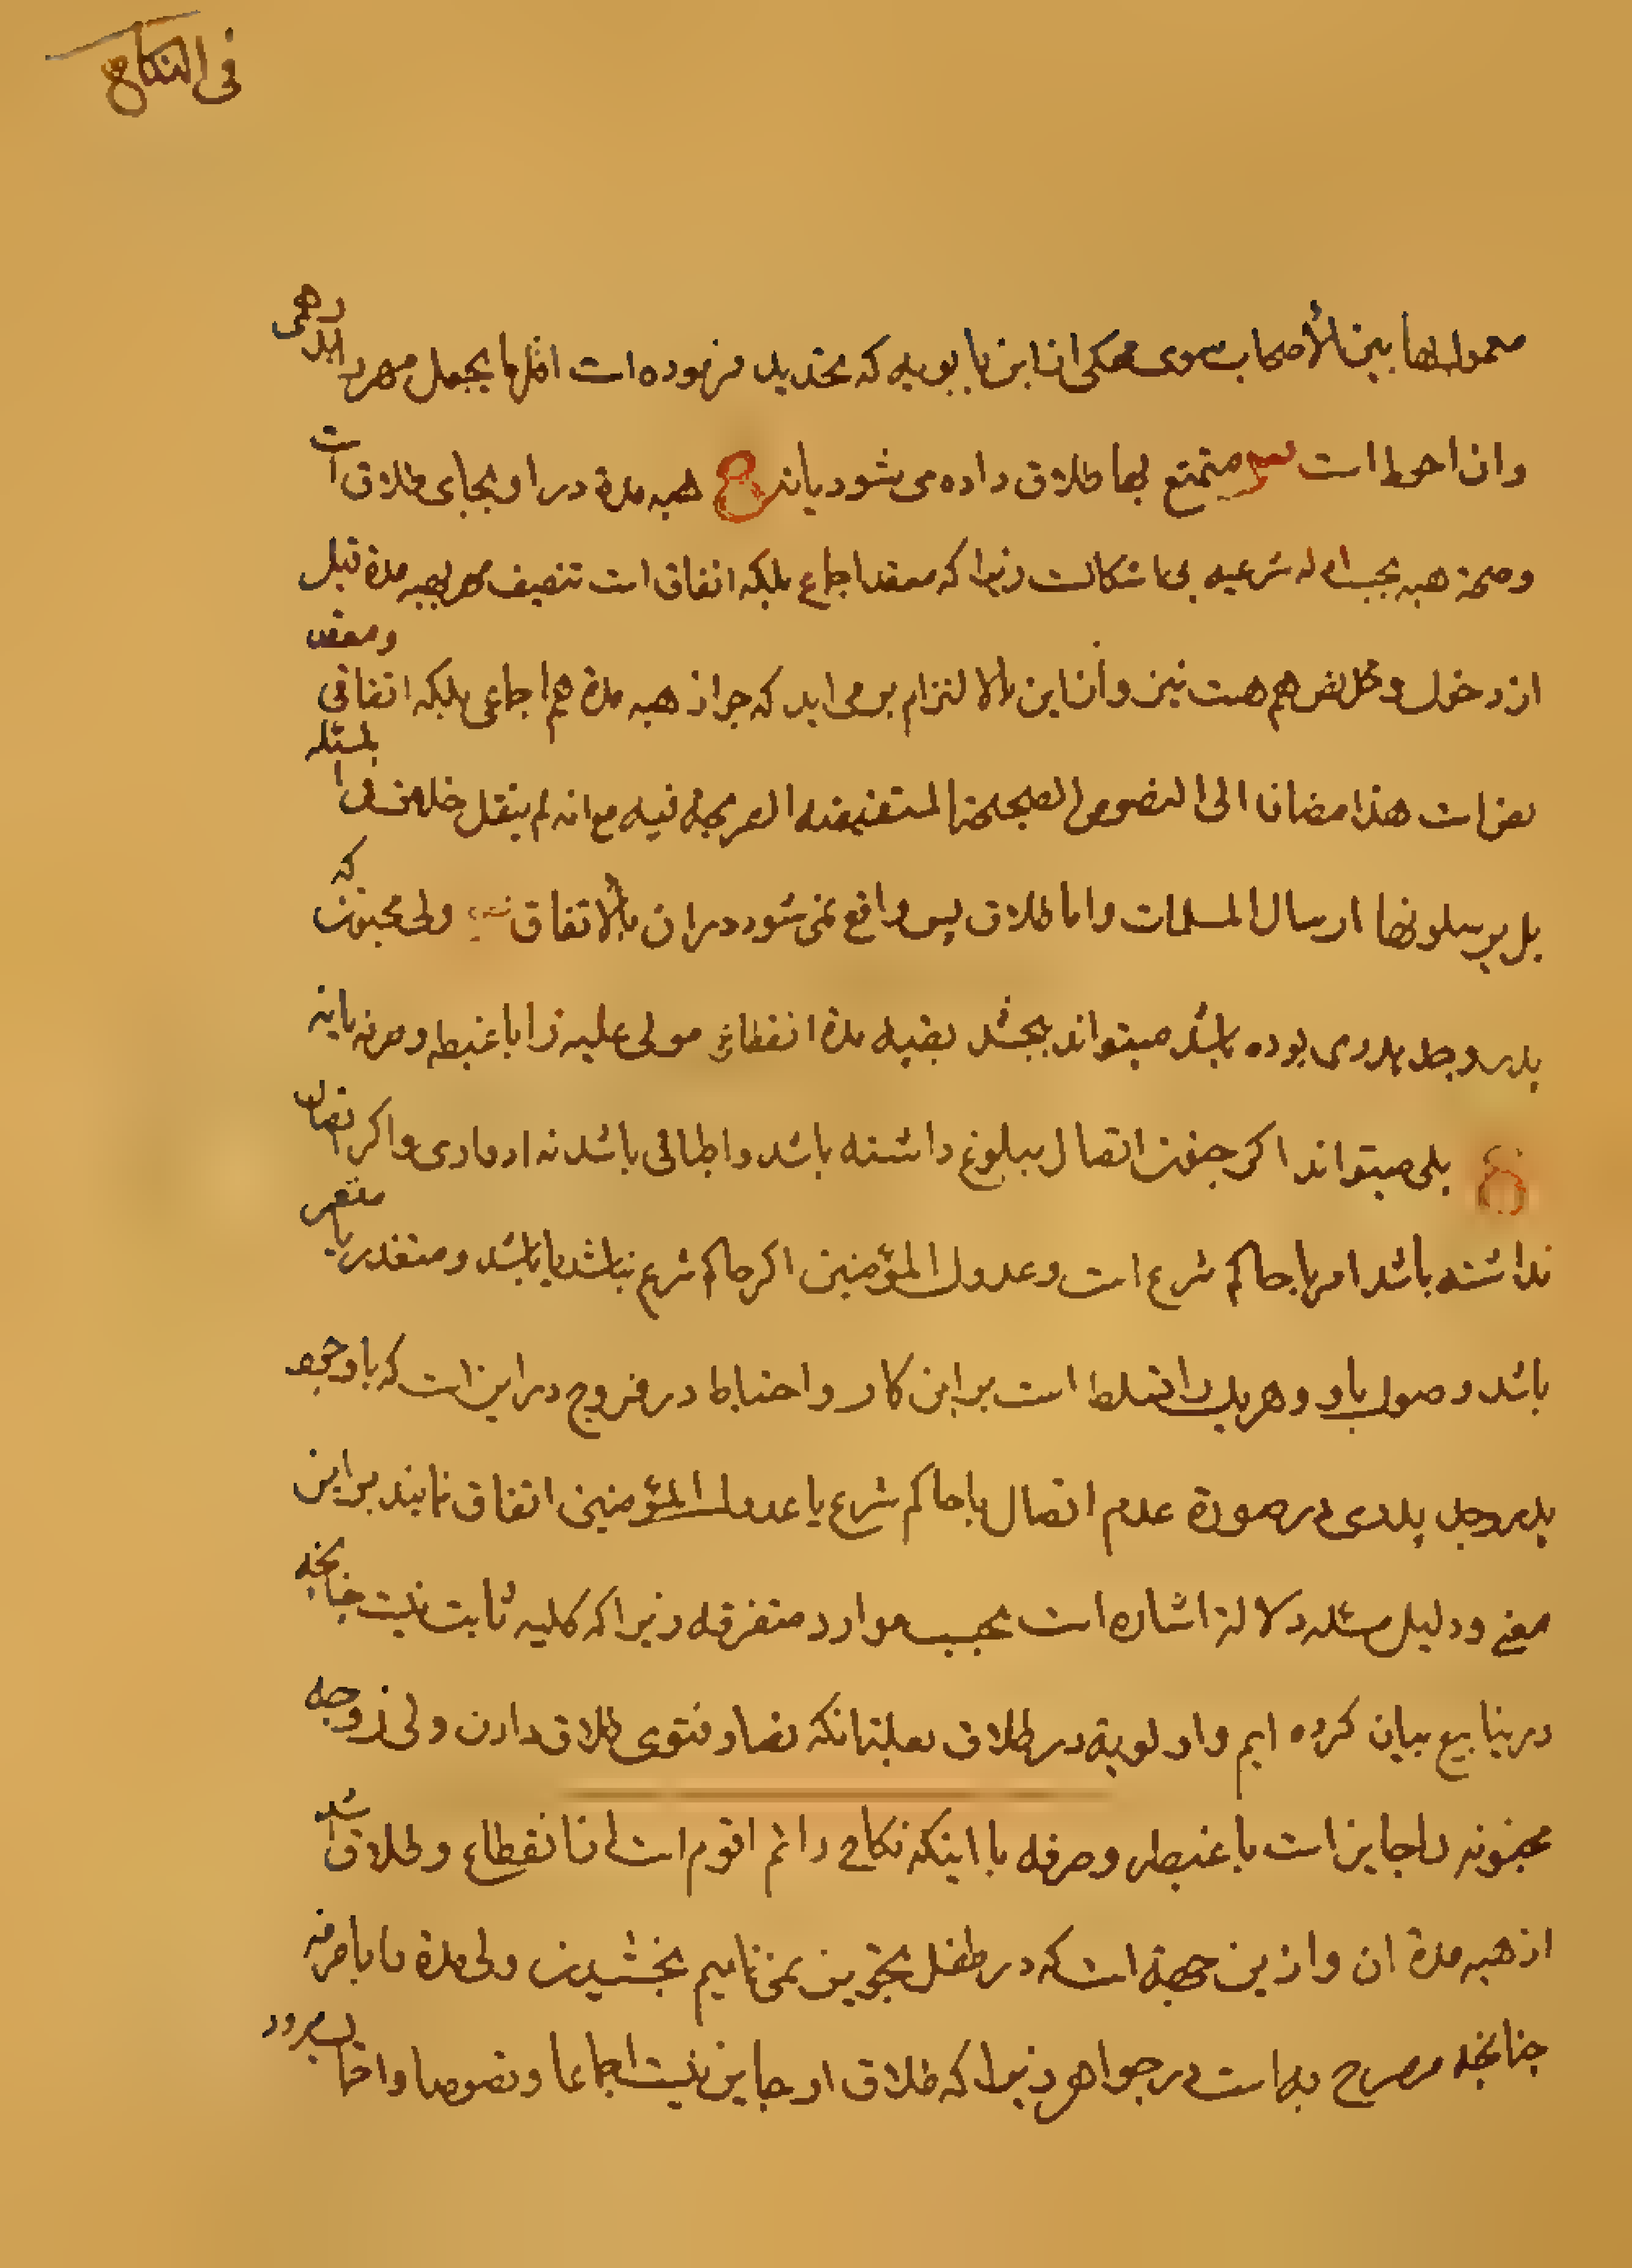 فی النکاح
معمول بها بین الأصحاب سوی محکی از ابن بابویه که تحدید فرموده است اقل ما یجعل مهر درهمی
وان احوط است س متمتع بها طلاق داده می شود یانه ج هبه مدة در او بجای طلاق است
وصحة هبه بحسب ادله شرعیه بی اشکالست زیرا که معقد اجماع بلکه اتفاق است تنصیف مهر بهبه مدة قبل
از دخول و محل نص هم هست نیز و از این بالالتزام بر می اید که جواز هبه مدة هم اجماعی بلکه اتفاقی ومعقد
نص است هذا مضافا الی النصوص الصحیحة المستفیضه الصریحة فیه مع انه لم ینقل خلاف فی المسئله
بل یرسلونها ارسال المسلمات واما طلاق پس واقع نمی شود در ان بالاتفاق س ولی مجنون که
پدر و جد پدری بوده باشد میتواند بخشد بقیه مدة انقطاع مولی علیه را با غبطه وصرفه یا نه
ج بلی میتواند اگر جنون اتصال ببلوغ داشته باشد واطباقی باشد نه ادواری واگر اتصال
نداشته باشد امر با حاکم شرع است وعدول المؤمنین اگر حاکم شرع نباشد یا باشد ومتعذر یا متعسر
باشد وصول باو وهریک را تسلط است بر این کار واحتیاط در فروج در این است که با وجود
پدر وجد پدری در صورة عدم اتصال با حاکم شرع یا عدول المؤمنین اتفاق نمایند بر این
معنی ودلیل مسئله دلالة اشاره است بحسب موارد متفرقه زیرا که کلیه ثابت نیست چنانچه
در ینابیع بیان کرده ایم واولویة در طلاق بعلت انکه نصا وفتوی طلاق دادن ولی زوجه
مجنونه را جایز است با غبطه وصرفه با اینکه نکاح دائم اقوم است از انقطاع وطلاق اشد
از هبه مدة ان واز ین جهة است که در طفل تجویز نمی نماییم بخشیدن ولی مدة را با صرفه
چنانچه مصرح به است در جواهر زیرا که طلاق او جایز نیست اجماعا ونصوصا